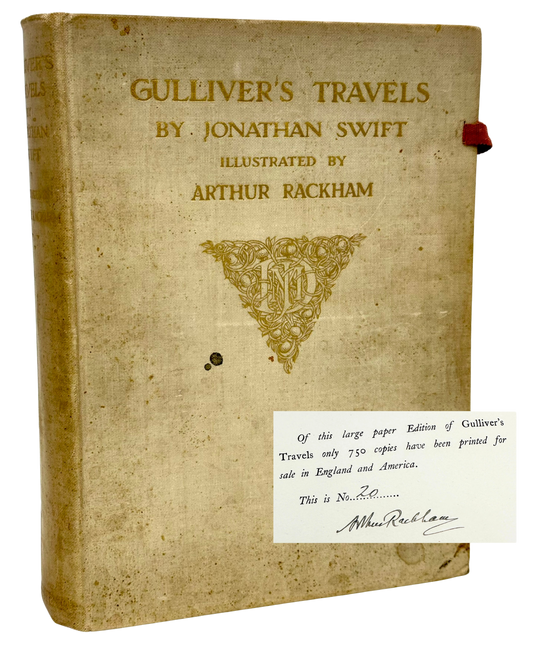 GULLIVER'S TRAVELS
BY JONATHAN SWIFT
ILLUSTRATED BY
ARTHUR RACKHAM
Of this large paper Edition of Gulliver's
Travels only 750 copies have been printed for
sale in England and America.
This is No. 20
Arthur Rackham